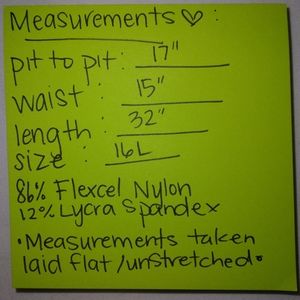 Measurements ♡ :
pit to pit : 17"
waist : 15"
length : 32"
size : 16L
86% Flexcel Nylon
12% Lycra Spandex
• Measurements taken
laid flat / unstretched •